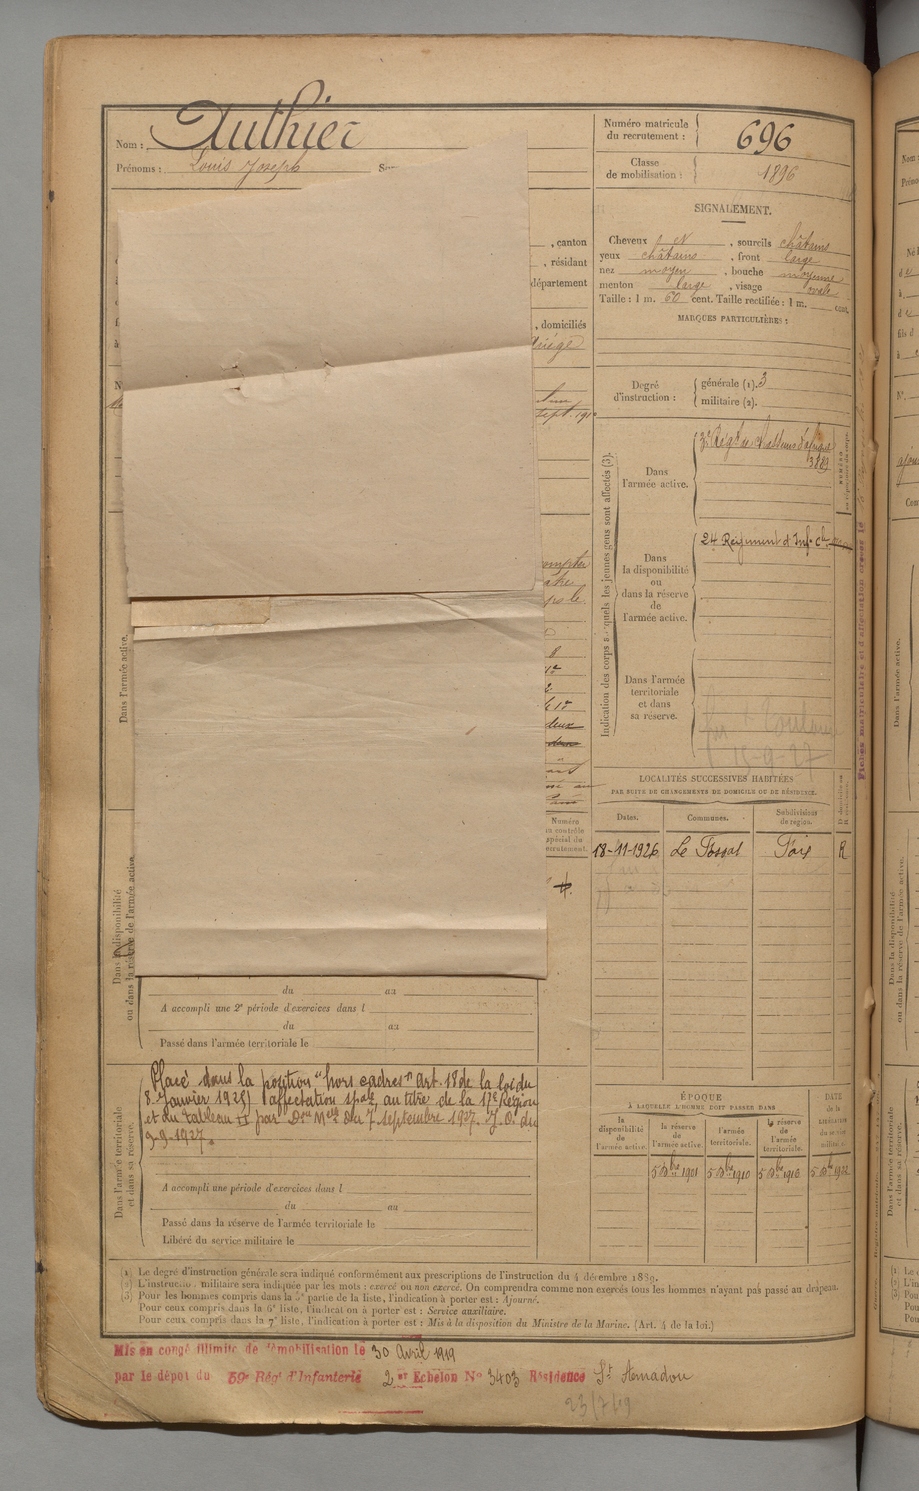 Nom : Authier
Prénoms : Louis Joseph
Numéro matricule du recrutement : 696
Classe de mobilisation : 1896
SIGNALEMENT.
Cheveux et N , sourcils châtains
yeux châtains , front large
nez moyen , bouche moyenne
menton large , visage ovale
Taille : 1 m. 60 cent. Taille rectifiée : 1 m. cent.
MARQUES PARTICULIÈRES :
, canton
, résidant
département
, domiciliés
Ariège
sept. 191
Degré d'instruction : générale (1). 3
militaire (2).
Indication des corps auxquels les jeunes gens sont affectés (3).
Dans
l'armée active.
3e Régt de Chasseurs d'afrique
Dans
la disponibilité
ou
dans la réserve
de
l'armée active.
24 Régiment d'Infie Cle
Dans l'armée
territoriale
et dans
sa réserve.
15-9-27
Fiches matriculaire et d'affectation créées le
Dans l'armée active.
compter
deux
LOCALITÉS SUCCESSIVES HABITÉES
PAR SUITE DE CHANGEMENTS DE DOMICILE OU DE RÉSIDENCE.
Dates. Communes. Subdivisions de région.
18-11-1926 Le Fossat Foix R
Numéro
au contrôle
spécial du
recrutement.
Dans la disponibilité
ou dans la réserve de l'armée active.
du au
A accompli une 2e période d'exercices dans l
du au
Passé dans l'armée territoriale le
Dans l'armée territoriale
et dans sa réserve.
Placé dans la position "hors cadres" Art. 18 de la loi du
8 Janvier 1925) affectation spale au titre de la 17e Région
et du tableau II par Don Melle du 7 septembre 1927. J.O. du
9-9-1927.
A accompli une période d'exercices dans l
du au
Passé dans la réserve de l'armée territoriale le
Libéré du service militaire le
ÉPOQUE
À LAQUELLE L'HOMME DOIT PASSER DANS
la disponibilité de l'armée active. la réserve de l'armée active. l'armée territoriale. la réserve de l'armée territoriale. DATE de la LIBÉRATION du service militaire.
5 9bre 1901 5 9bre 1910 5 9bre 1916 5 9bre 1922
(1) Le degré d'instruction générale sera indiqué conformément aux prescriptions de l'instruction du 4 décembre 1889.
(2) L'instruction militaire sera indiquée par les mots : exercé ou non exercé. On comprendra comme non exercés tous les hommes n'ayant pas passé au drapeau.
(3) Pour les hommes compris dans la 5e partie de la liste, l'indication à porter est : Ajourné.
Pour ceux compris dans la 6e liste, l'indication à porter est : Service auxiliaire.
Pour ceux compris dans la 7e liste, l'indication à porter est : Mis à la disposition du Ministre de la Marine. (Art. 4 de la loi.)
Mis en congé illimité de démobilisation le 30 Avril 1919
par le dépôt du 59e Régt d'Infanterie 2me Echelon No 3403 Résidence St Amadou
23/7/19